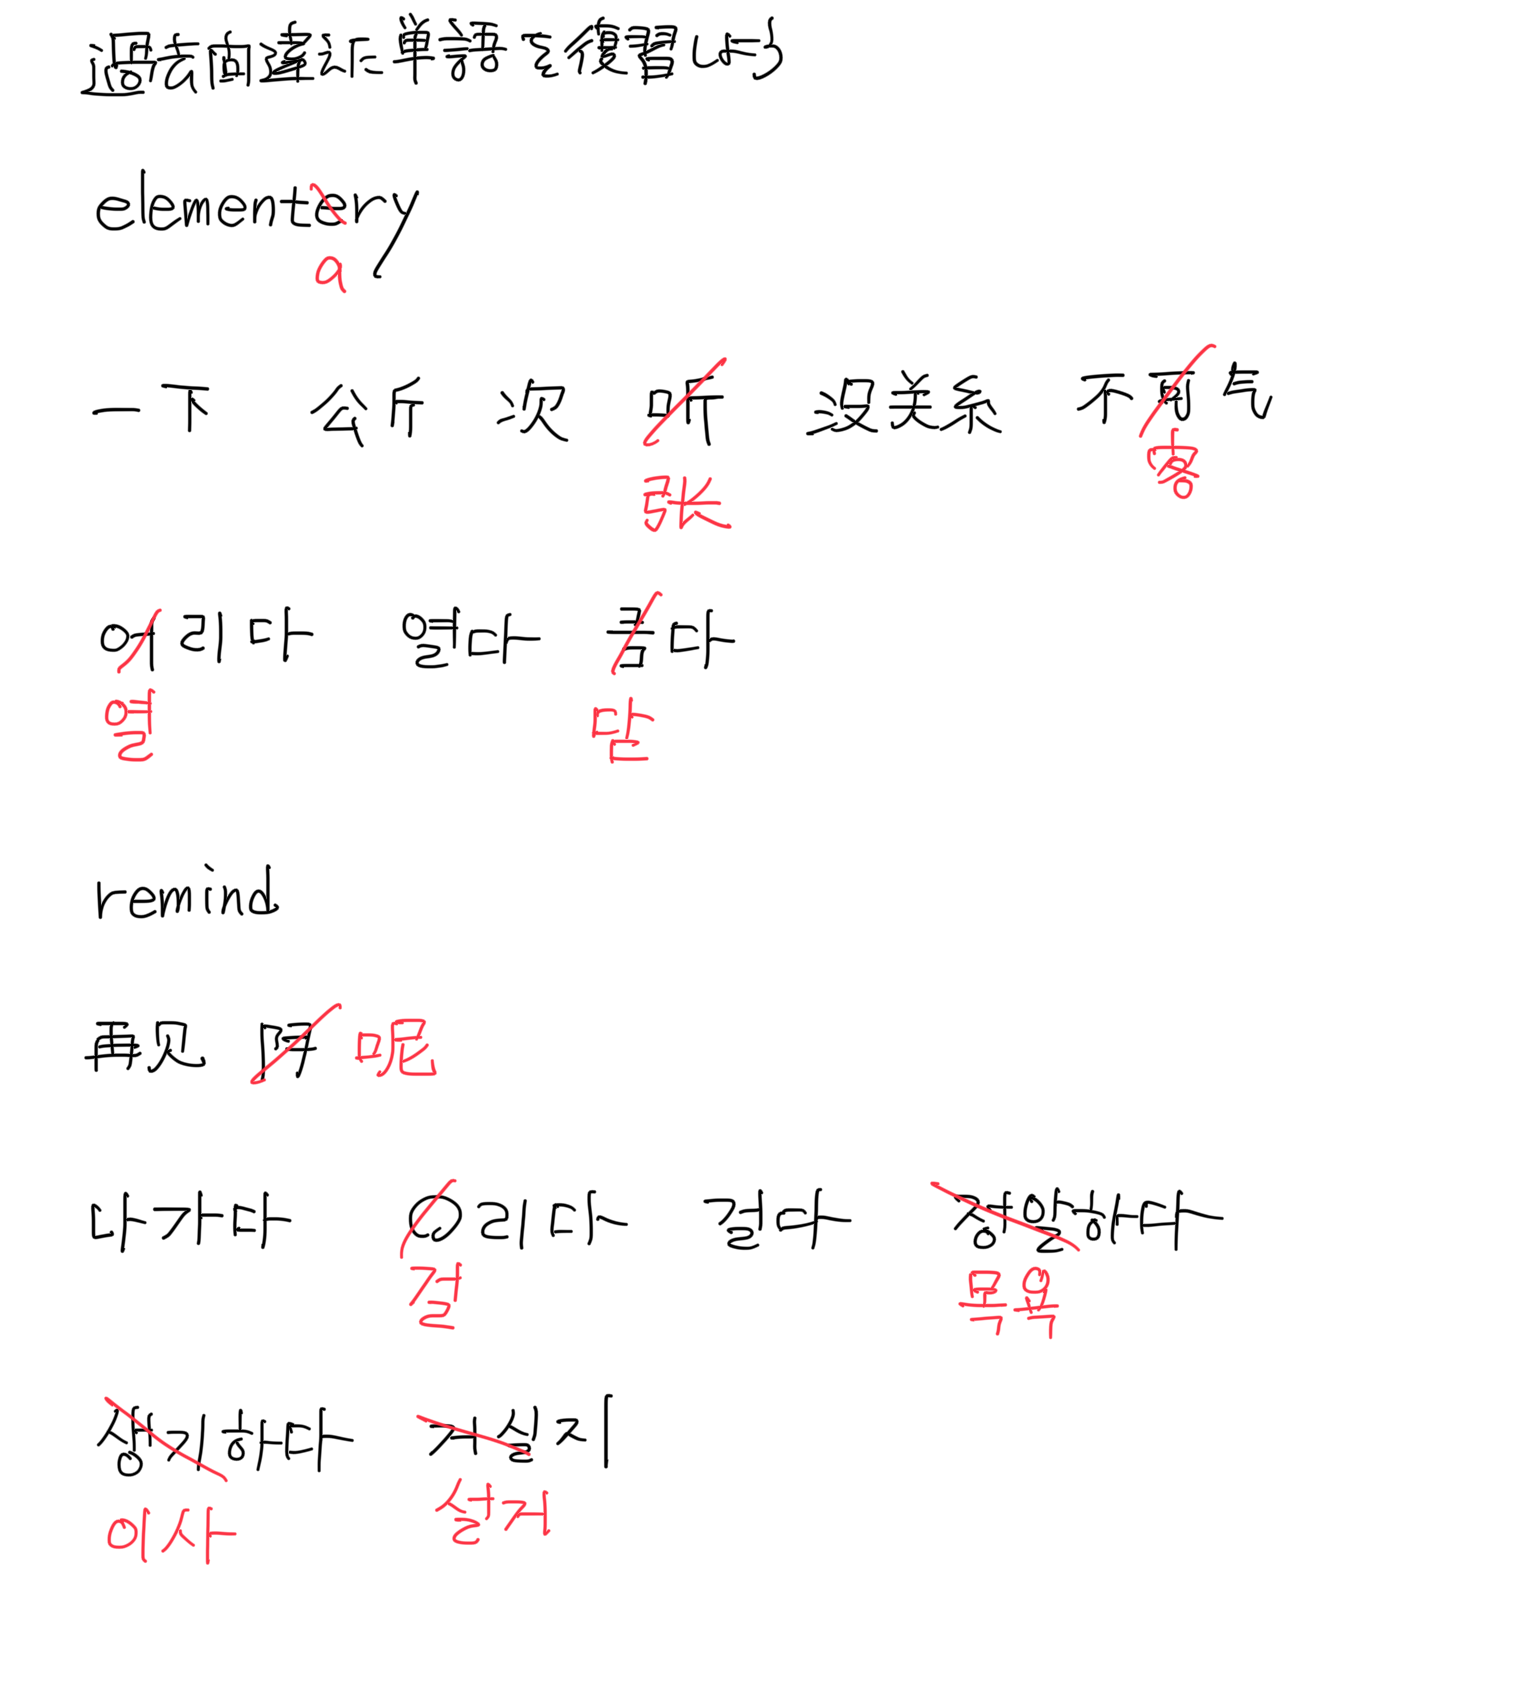 過去間違えた単語を復習しよう
elementery
a
一下 公斤 次 听 没关系 不可气
张 客
어리다 열다 콤다
열 닫
remind
再见 阿 呢
나가다 오리다 걸다 정알하다
걸 목욕
생기하다 거실지
이사 설거